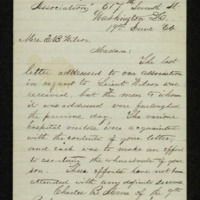 Association" 617 7th Street
Washington D.C.
19th June 64
Mrs. E. B. Wilson
Madam:
The last
letter addressed to our association
in regard to Lieut Wilson was
received, but the man to whom
it was addressed our
the previous day. The various
hospital visitors were acquainted
with the contents of your letter,
and each was to make an effort
to ascertain the whereabouts of your
son. These efforts have not been
attended with any definite success
Charles B. of the 9th